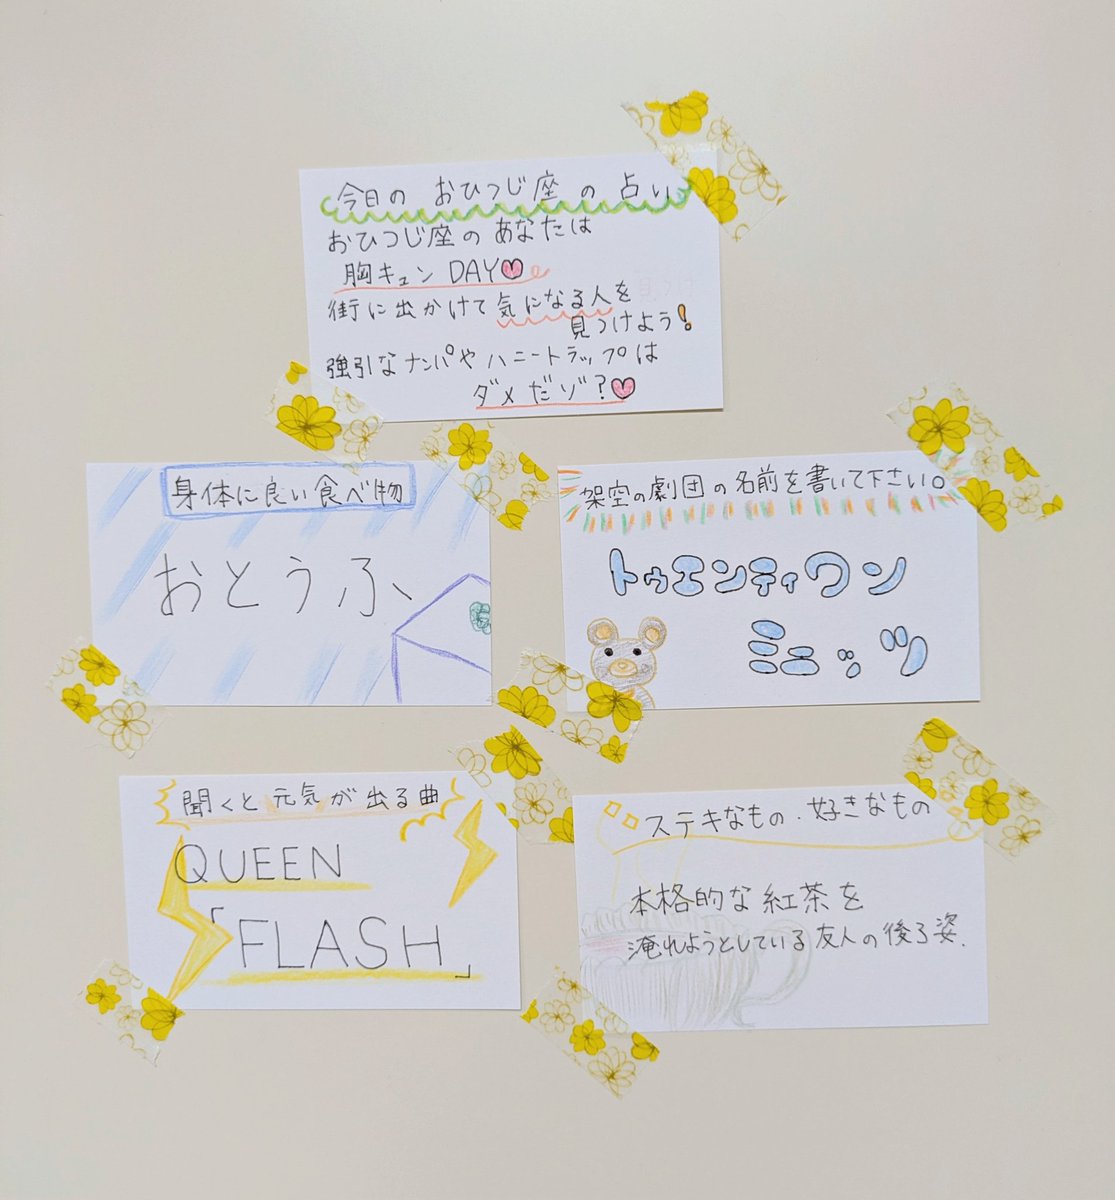 今日のおひつじ座の占い
おひつじ座のあなたは
胸キュンDAY
街に出かけて気になる人を
見つけよう!
強引なナンパやハニートラップは
ダメだゾ?
身体に良い食べ物
おとうふ、
架空の劇団の名前を書いて下さい。
トゥエンティワン
ミニッツ
聞くと元気が出る曲
QUEEN
「FLASH」
ステキなもの・好きなもの
本格的な紅茶を
淹れようとしている友人の後ろ姿.